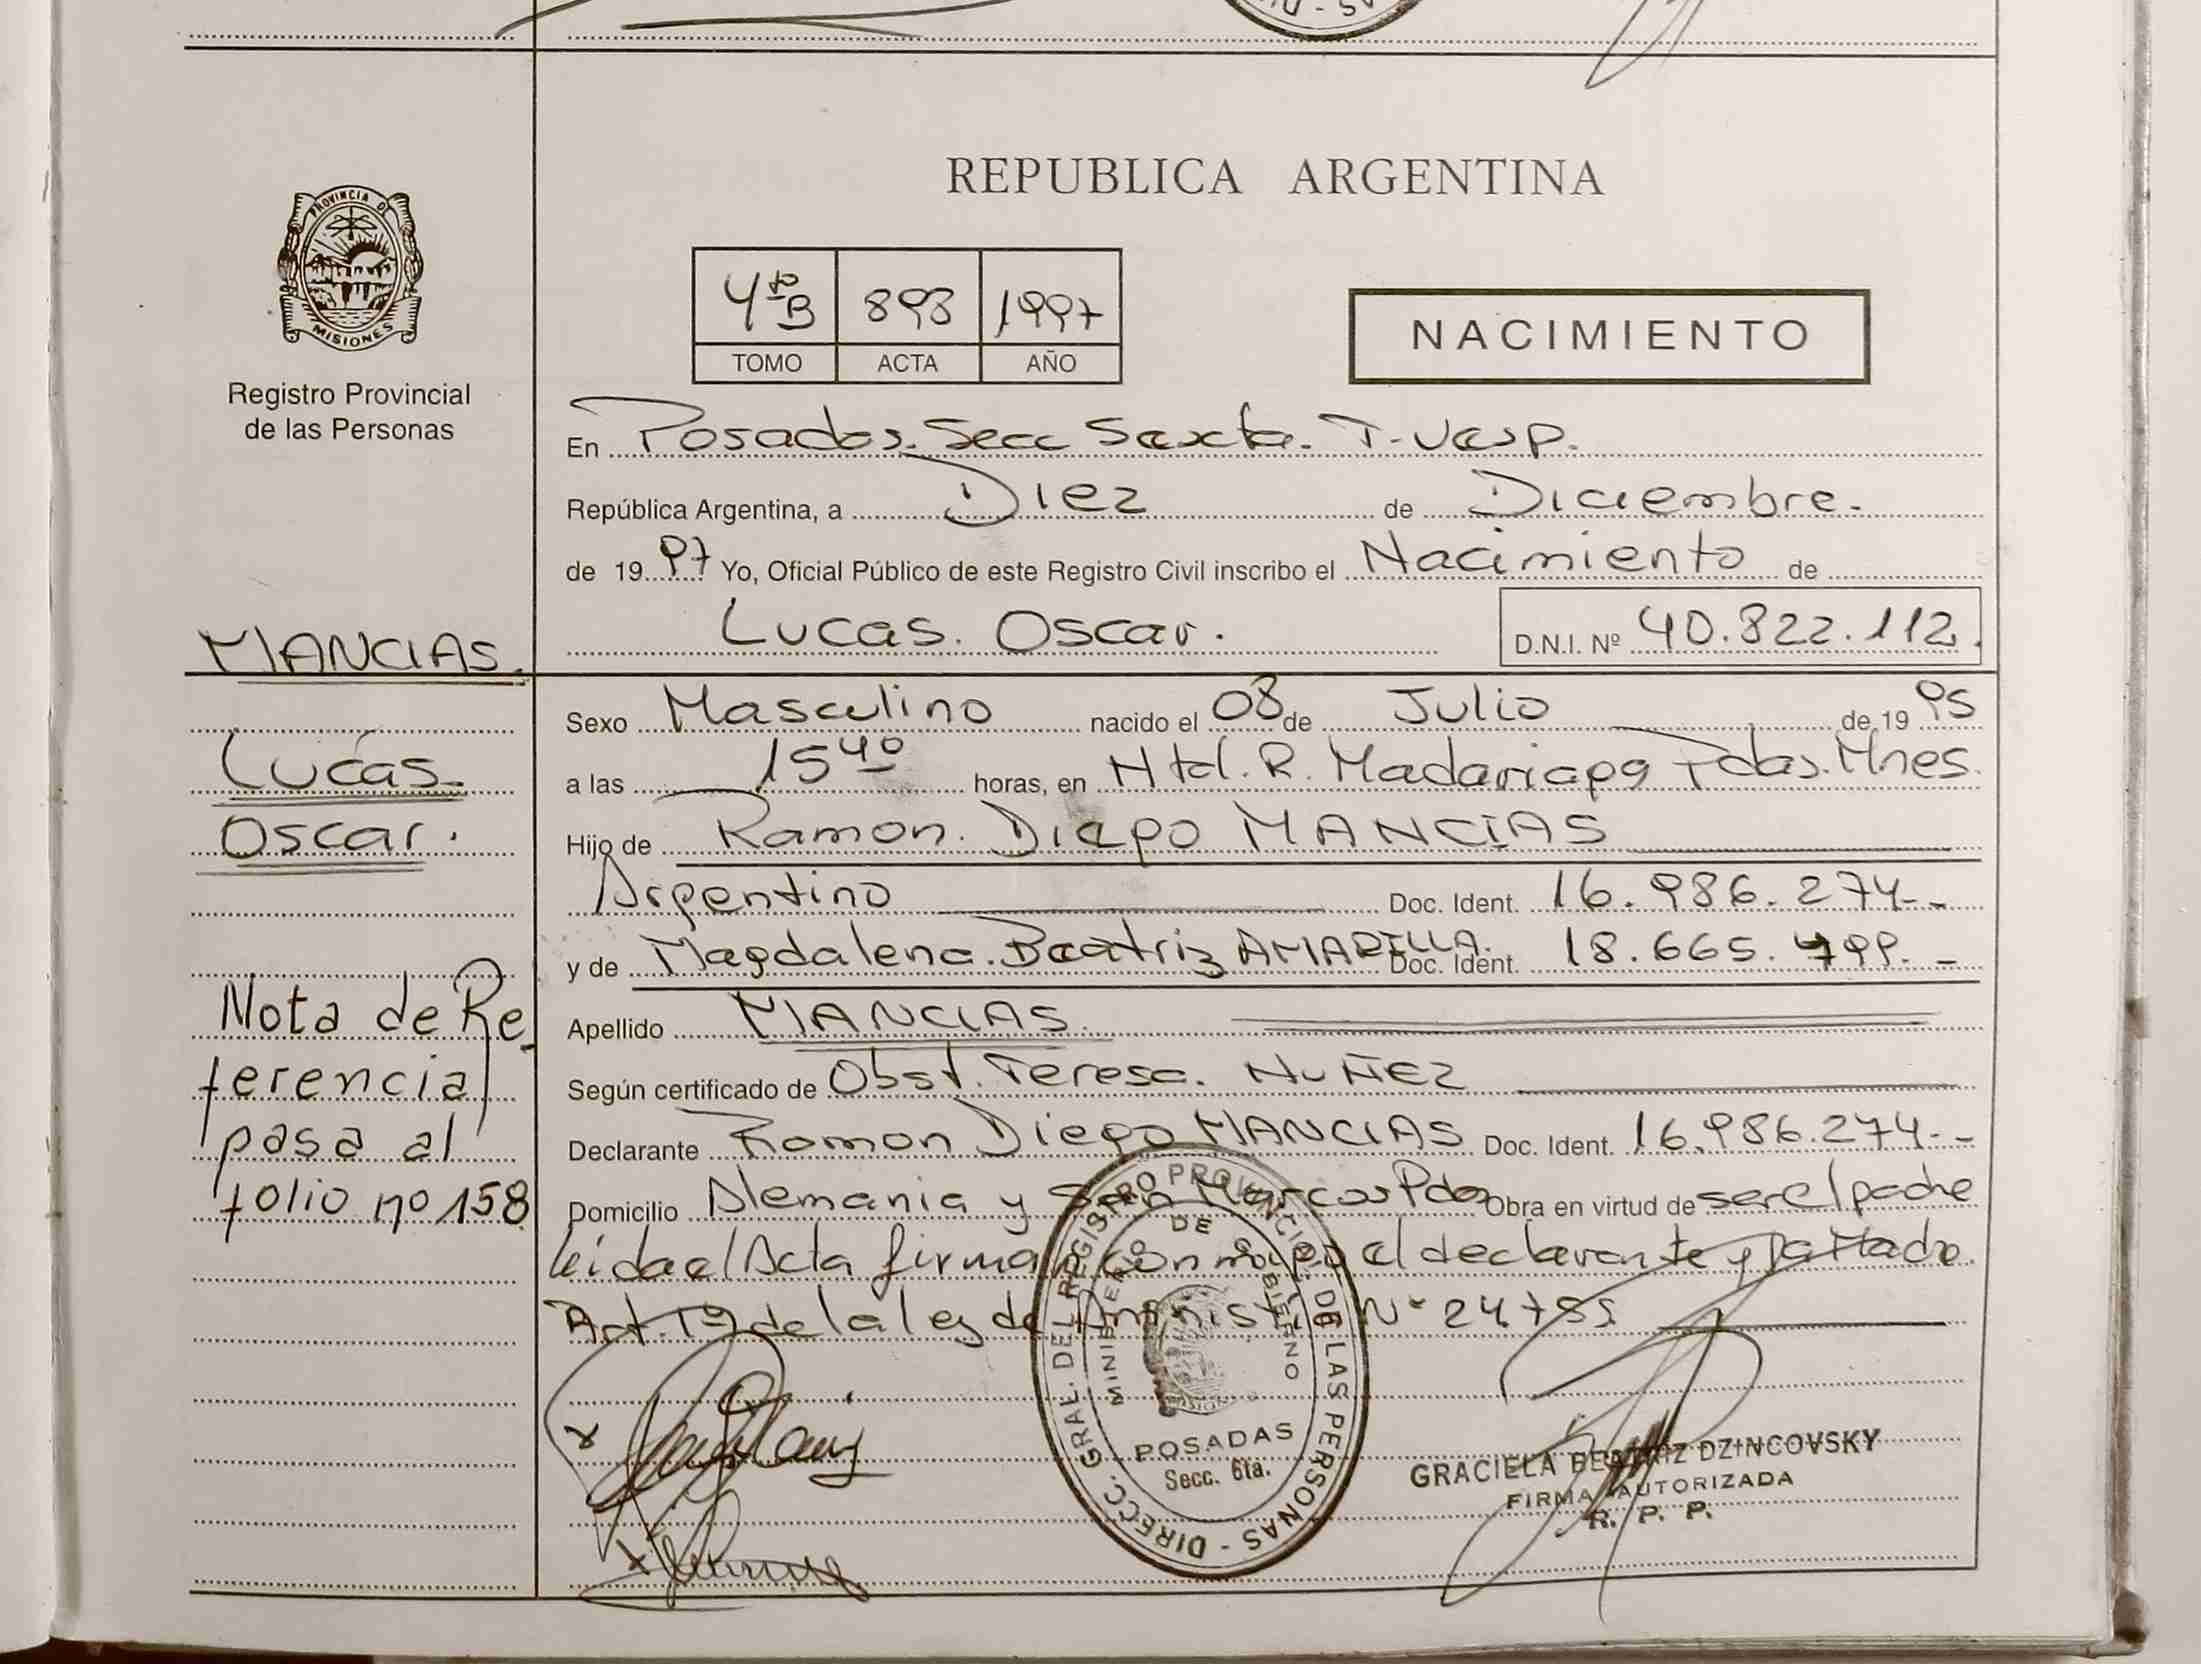 REPUBLICA ARGENTINA
PROVINCIA DE
MISIONES
Registro Provincial
de las Personas
4to B 898 1997
TOMO ACTA AÑO
NACIMIENTO
En Posadas. Secc Sexta. T. Vesp.
República Argentina, a Diez de Diciembre.
de 1997 Yo, Oficial Público de este Registro Civil inscribo el Nacimiento de
Lucas. Oscar. D.N.I. Nº 40.822.112.
MANCIAS.
Lucas.
Oscar.
Nota de Re-
ferencia
pasa al
folio nº 158
Sexo Masculino nacido el 08 de Julio de 1995
a las 15 40 horas, en Htal. R. Madariaga Pdas. Mnes.
Hijo de Ramon. Diego MANCIAS
Argentino Doc. Ident. 16.986.274.-
y de Magdalena. Beatriz AMARILLA. Doc. Ident. 18.665.799.-
Apellido MANCIAS.
Según certificado de Obst. Teresa. NUÑEZ
Declarante Ramon Diego MANCIAS Doc. Ident. 16.986.274.-
Domicilio Alemania y San Marcos Pdas Obra en virtud de ser el padre
leida el Acta firman conmigo el declarante y la Madre.
Art. 1º de la ley de Amnistia Nº 24.755
DIRECC. GRAL. DEL REGISTRO PROVINCIAL DE LAS PERSONAS -
MINISTERIO DE GOBIERNO
MISIONES
POSADAS
Secc. 6ta.
GRACIELA BEATRIZ DZINCOVSKY
FIRMA AUTORIZADA
R. P. P.